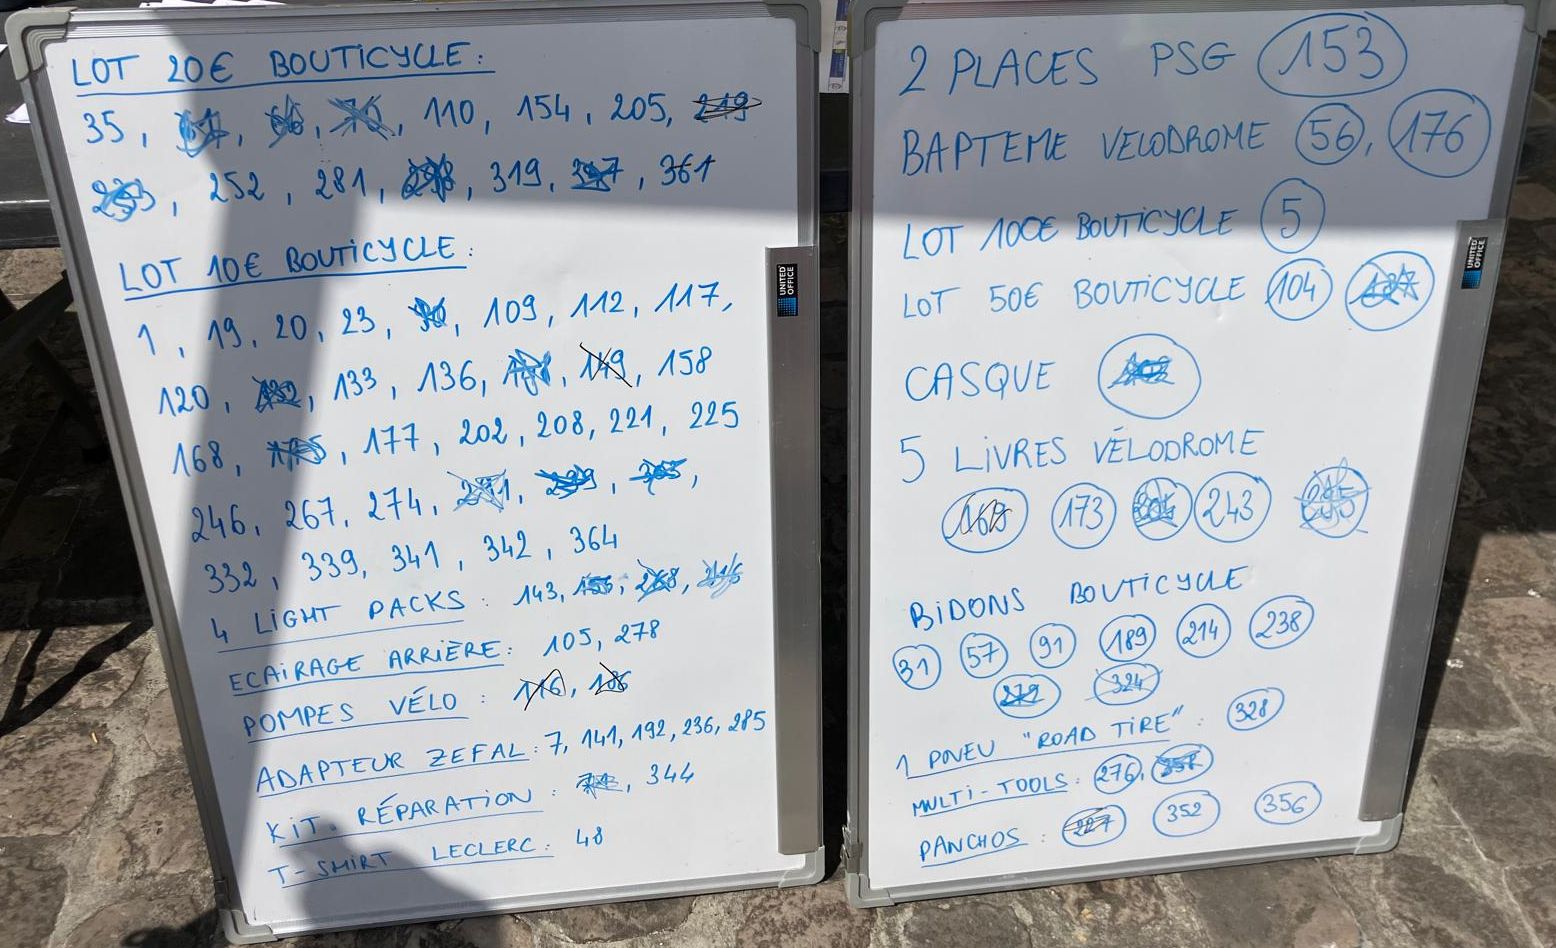 LOT 20€ BOUTICYCLE :
35, 110, 154, 205, 219
252, 281, 319, 361
LOT 10€ BOUTICYCLE :
1, 19, 20, 23, 109, 112, 117,
120, 132, 133, 136, 149, 158
168, 177, 202, 208, 221, 225
246, 267, 274,
332, 339, 341, 342, 364
4 LIGHT PACKS : 143, 268,
ECAIRAGE ARRIÈRE : 105, 278
POMPES VÉLO : 116, 186
ADAPTEUR ZEFAL : 7, 141, 192, 236, 285
KIT. RÉPARATION : , 344
T-SHIRT LECLERC : 48
UNITED OFFICE
2 PLACES PSG 153
BAPTEME VELODROME 56, 176
LOT 100€ BOUTICYCLE 5
LOT 50€ BOUTICYCLE 104
CASQUE
5 LIVRES VÉLODROME
173 243
BIDONS BOUTICYCLE
31 57 91 189 214 238
324
1 PNEU "ROAD TIRE" : 328
MULTI-TOOLS : 276,
PANCHOS : 227 352 356
UNITED OFFICE